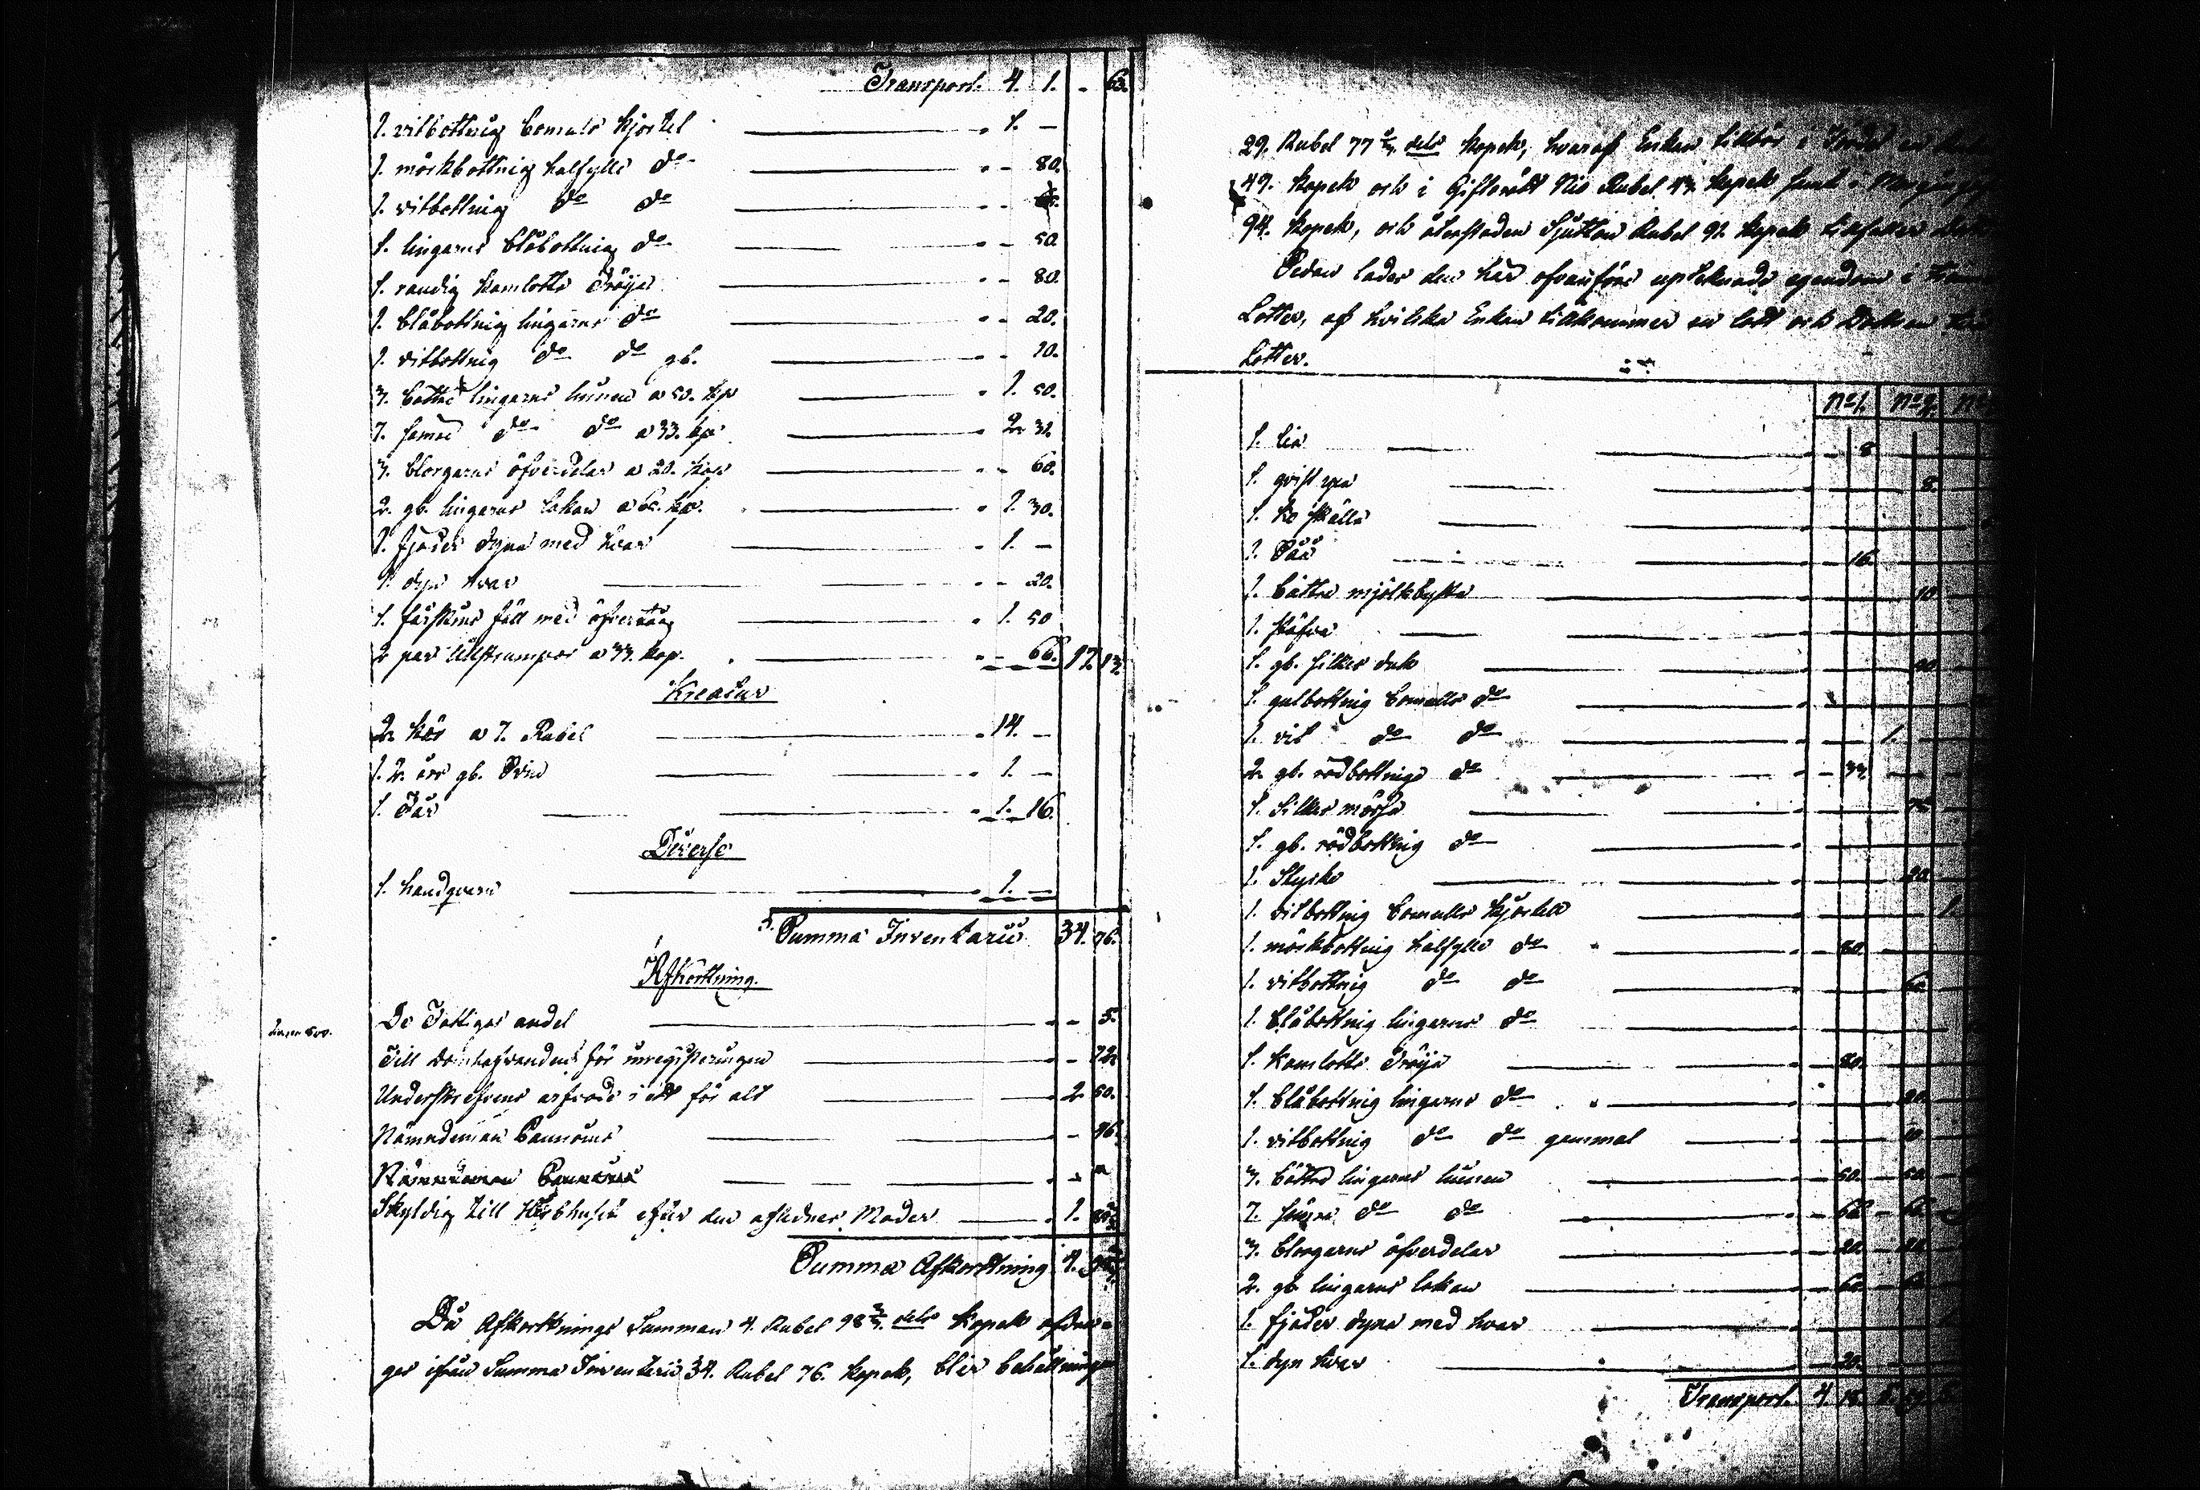 Transport. 4. 1. - 63.
1. vitbottnig bomuls kjortel - 1. -
1. mörkbottnig halfylle do - - 80.
1. vitbottnig do do - -
1. lingarns blåbottnig do - - 50.
1. randig kamlotts Tröja - - 80.
1. blåbottnig lingarns do - - 20.
1. vitbottnig do do gb. - - 10.
3. bättre lingarns linnen a 50. kp - 1. 50.
7. sämre do do a 33. kp - 2. 31.
3. blorgarns öfverdelar a 20. kop - - 60.
2. gb. lingarns lakan a 65. kp. - 1. 30.
1. fjäder dyna med hvar - 1. -
1. dyn hvar - - 20.
1. fårskins fäll med öfvertåg - 1. 50
2 par ullstrumpor a 33. kop. - - 66. 17. 13.
Kreatur
2. kor a 7. Rubel - 14. -
1. 2. års gb. Svin - 1. -
1. Får - 1. 16.
Diverse
1. handqvarn - 1. -
Summa Inventarii 34. 76.
Afkortning.
De Fattigas andel - - 5.
Till domhafvanden för inregistreringen - - 72
Underskrefvens arfvode i ett för alt - 2 50.
Nämndeman - - 16.
Nämndeman - -
Skyldig till Sterbhuset efter den aflednes Moder - 1.
Summa Afkortning 4.
Då Afkortnings Summan 4. Rubel 98 3/7. dels kopek afdra-
ges ifrån Summa Inventarii 34. Rubel 76. kopek, blir behållningen
29. Rubel 77 4/7. dels kopek, hvaraf Enkan tillkör i
49. kopek och i Giftorätt Nio Rubel 43. kopek samt i
94. kopek, och återstoden Sjutton Rubel 91. kopek tillfaller
Sedan lades den här ofvanföre uptecknade egendom i
Lotter, af hvilka Enkan tillkommer en lott och
Lotter.
No 1. No 2. No
1. lia - - 8
1. qvist yxa - 8.
1. ko skälla
1. Såå - - 16.
1. bättre mjölkbytta - 10
1. skäfva
1. gb. silkes duk - 20.
1. gulbottnig bomulls do
1. vit do do - 1.
2. gb. rödbottnige do - - 33.
1. Silkes mössa - 75.
1. gb. rödbottnig do
1. Stycke - 20.
1. vitbottnig bomulls kjortell - 1.
1. mörkbottnig halfylle do - 80.
1. vitbottnig do do - 60.
1. blåbottnig lingarns do
1. kamlotts Tröja - 80.
1. blåbottnig lingarns do - 20.
1. vitbottnig do do gammal - 10
3. bättre lingarns linnen - 50. - 50.
7. sämre do do - 66. - 66.
3. blorgarns öfverdelar - 20. - 20.
2. gb. lingarns lakan - 65.
1. fjäder dyna med hvar
1. dyn hvar - 20.
Transport. 4. 18.